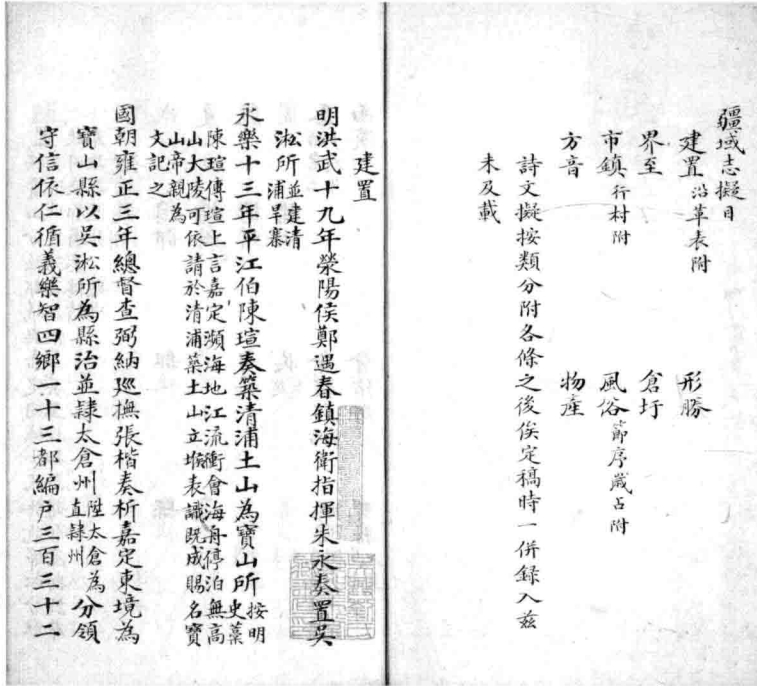 疆域志擬目
建置沿革表附 形勝
界至 倉圩
市鎮行村附 風俗節序歲占附
方音 物產
詩文擬按類分附各條之後俟定稿時一併錄入茲
未及載
建置
明洪武十九年滎陽侯鄭遇春鎮海衛指揮朱永奏置吳
淞所並建清浦旱寨
永樂十三年平江伯陳瑄奏築清浦土山為寶山所按明史藁
陳瑄傳瑄上言嘉定瀕海地江流衝會海舟停泊無高
山大陵可依請於清浦築土山立堠表識既成賜名寶
山帝親為
文記之
國朝雍正三年總督查弼納廵撫張楷奏析嘉定東境為
寶山縣以吳淞所為縣治並隸太倉州陞太倉為直隸州分領
守信依仁循義樂智四鄉一十三都編戶三百三十二